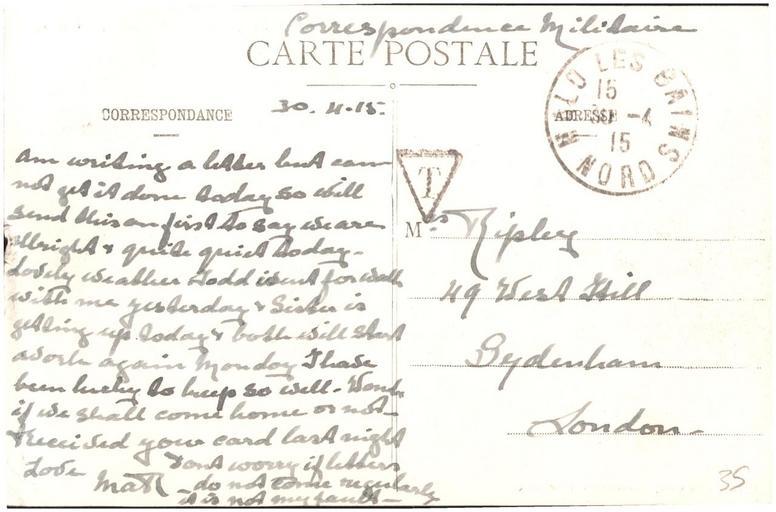 Correspondence Militaire
CARTE POSTALE
CORRESPONDANCE
30.4.15.
ADRESSE
MALO LES BAINS
15
30 -4
15
NORD
T
am writing a letter but can
not get it done today so will
send this on first to say we are
allright & quite quiet today -
Lovely weather Todd went for walk
with me yesterday & Sister is
getting up today & both will start
work again Monday I have
been lucky to keep so well - Wonder
if we shall come home or not -
Received your card last night
Love
Dont worry if letters
do not come regularly
it is not my fault -
Mrs Ripley
49 West Hill
Sydenham
London -
35